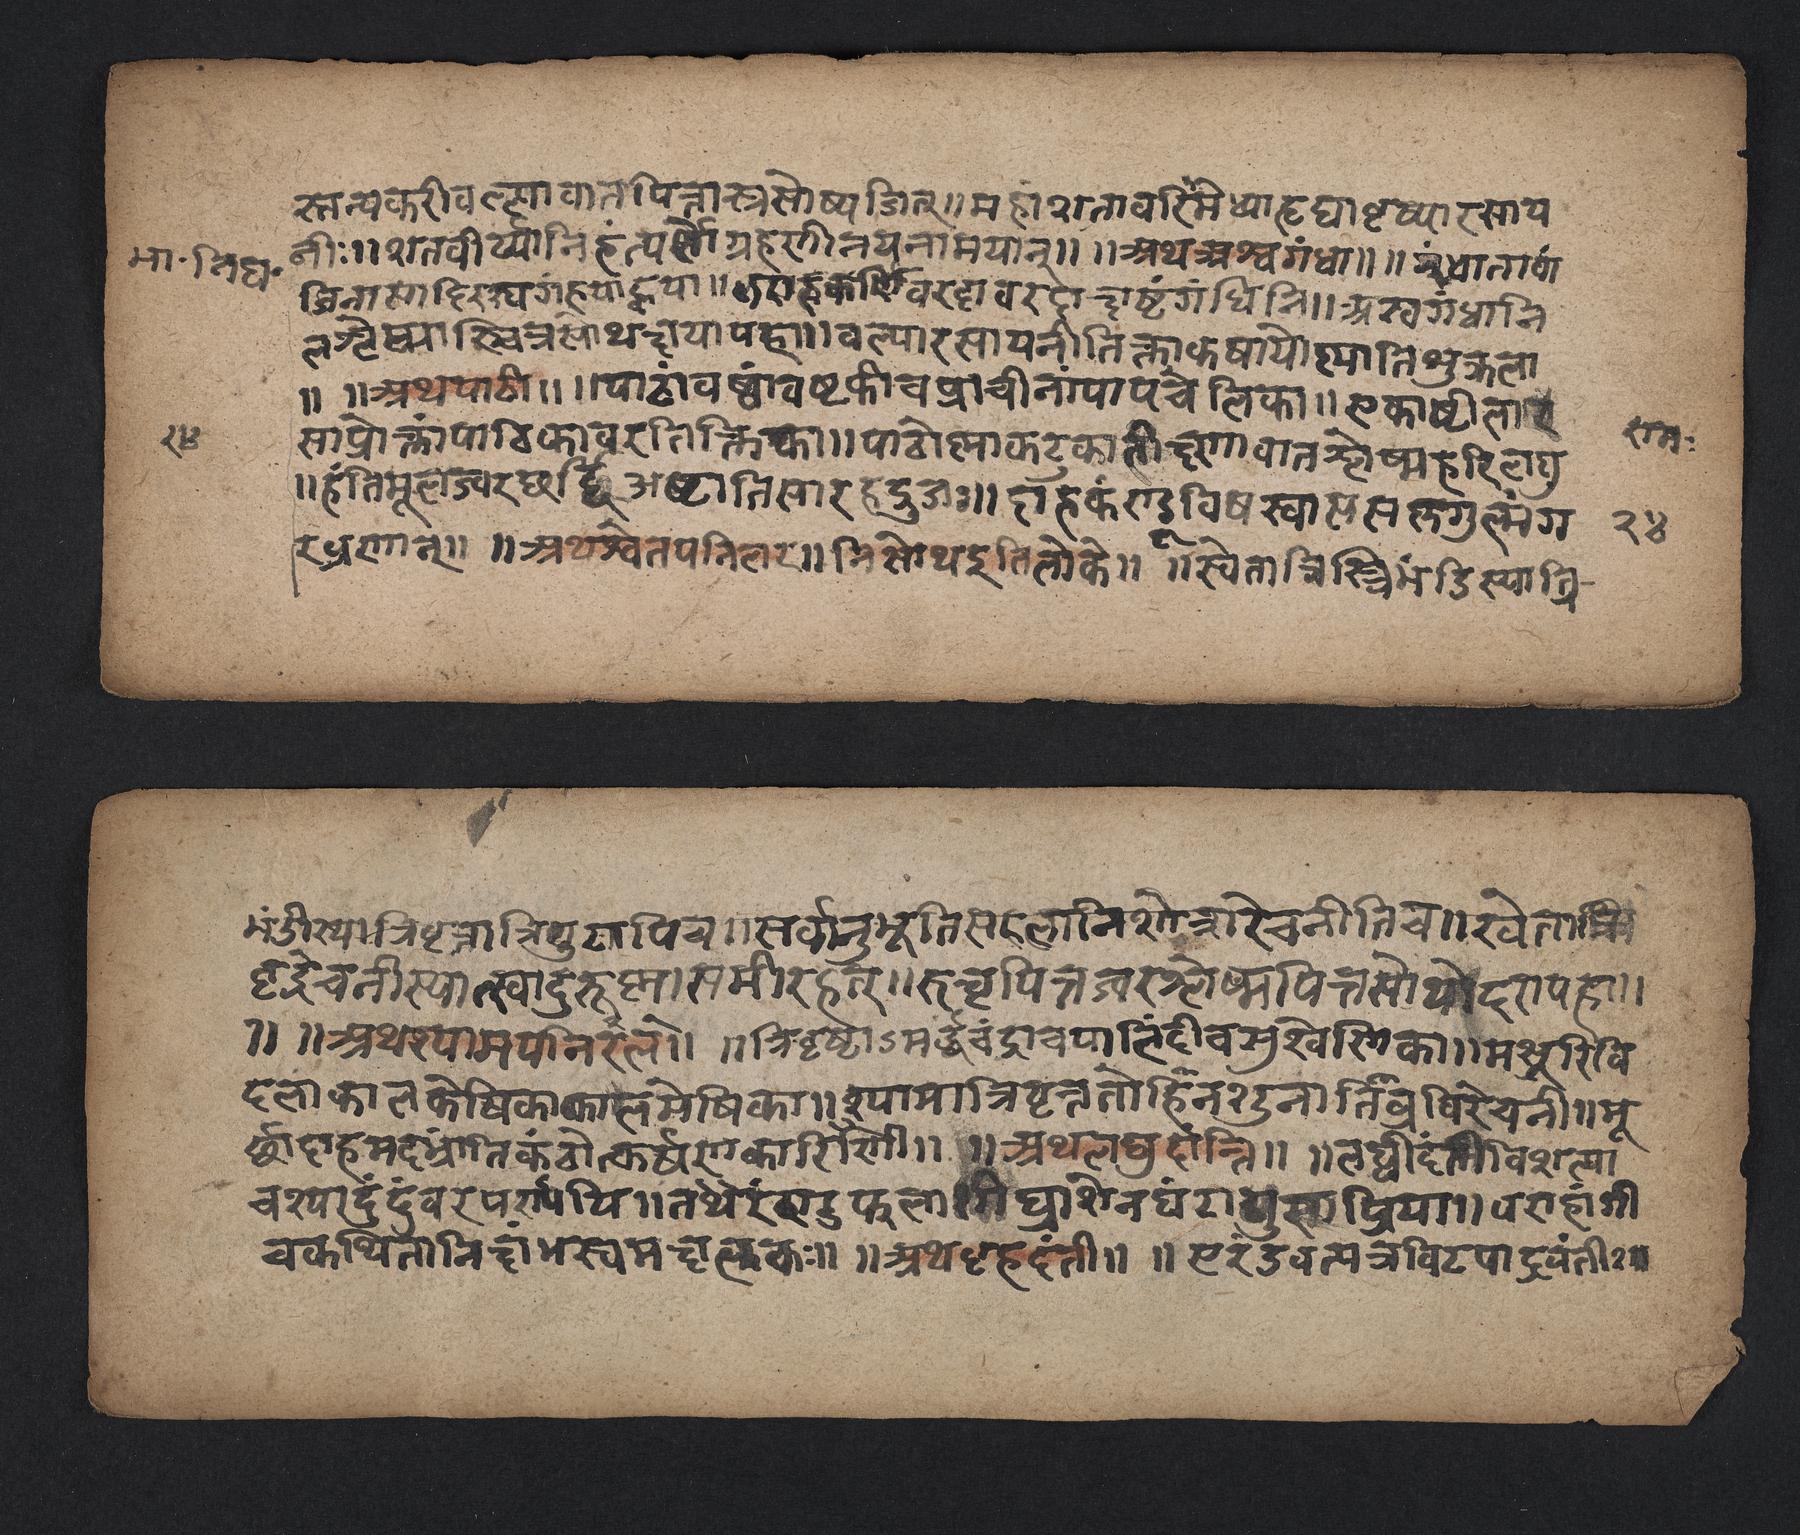 स्तन्यकरी वल्या वातपित्तास्त्रसोष्यजित् ॥ महाशतावरि मेध्या हृद्या वृष्या रसाय
भा॰ निघ॰
नीः ॥ शतवीर्य्या निहंत्यर्शो ग्रहणीनयनामयान् ॥ ॥ अथ अश्वगंधा ॥ ॥ गंधातावा
जिनामादि हयाह्वया ॥ वराहकर्णि वरदा वरदा गंधिनि ॥ अस्वगंधानि
लश्लेष्मा स्वित्रसोथक्षयापहा ॥ वल्या रसायनी तिक्ता कषायोष्णातिशुक्रला
॥ ॥ अथ पाठा ॥ ॥ पाठांवष्ठांवष्टकी च प्राचीना पापचेलिका ॥ एकाष्टीला र
सा प्रोक्ता पाठिका वरतिक्तिका ॥ पाठोष्णा कटुका तीक्ष्णा वातश्लेष्महरि लघु
२४
रामः
॥ हंति मूलज्वरछर्द्दि अष्टातिसारहृद्रुजः ॥ दाहकंण्डुविषस्वासस गुल्मंग
२४
रव्रणान् ॥ ॥ अथ श्वेतपनिलर ॥ निसोथ इति लोके ॥ ॥ स्वेता त्रि भंडि स्यात्रि
मंडी स्या त्रिवृत्ता त्रिपुटापि च ॥ सर्वानुभूति सरला निशोत्रा रेचनीति च ॥ स्वेता त्रि
वृद्रेचनी स्यात् स्वादुरूष्णा समीरहृत् ॥ रूक्ष पित्तज्वरश्लेष्मपित्तसोथोदरापहा ॥
॥ ॥ अथ श्यामपनिरल ॥ ॥ त्रिवृष्टाऽमर्द्धचंद्रा च पालिंदी च सुखेणिका ॥ मसुरवि
दला कालकेषिका कालमेषिका ॥ श्यामा त्रिवृत्ततो हिनगुना तिव्रविरेचनी ॥ मू
र्छादाहमदभ्रांतिकंठोत्कर्षणकारिणी ॥ ॥ अथ लघुदंन्ति ॥ ॥ लघ्वी दंती विशल्या
च स्यादुंदुंवरपर्ण्यपि ॥ तथैरंण्डफला शीघ्रा शेनघंटा घुणप्रिया ॥ वराहांगी
च कथिता नि ॥ ॥ अथ वृहद्दंती ॥ ॥ एरंडवत्पत्रविटपा द्रवंती